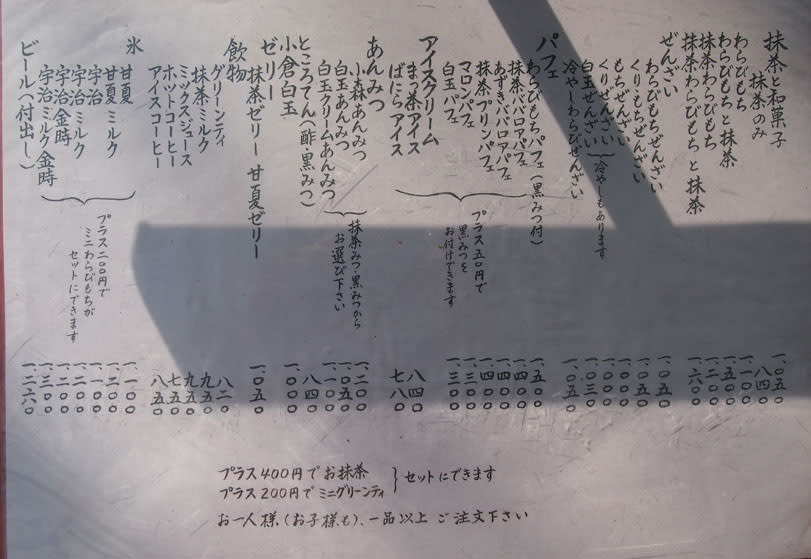 抹茶と和菓子 一、〇五〇
抹茶のみ 八四〇
わらびもち 一、一〇〇
わらびもちと抹茶 一、五〇〇
抹茶わらびもち 一、二〇〇
抹茶わらびもちと抹茶 一、六〇〇
ぜんざい
わらびもちぜんざい 一、〇五〇
くり・もちぜんざい 一、〇五〇
もちぜんざい 一、〇〇〇
くりぜんざい 一、〇〇〇
白玉ぜんざい 一、〇三〇
冷やしもあります
冷やしわらびぜんざい 一、〇五〇
パフェ
わらびもちパフェ(黒みつ付) 一、五〇〇
抹茶ババロアパフェ 一、四〇〇
あずきババロアパフェ 一、四〇〇
抹茶プリンパフェ 一、四〇〇
マロンパフェ 一、三〇〇
白玉パフェ 一、三〇〇
プラス五〇円で
黒みつを
お付けできます
アイスクリーム
まっ茶アイス 八四〇
ばにらアイス 七八〇
あんみつ
小森あんみつ 一、二〇〇
白玉あんみつ 一、〇五〇
白玉クリームあんみつ 一、一〇〇
抹茶みつ・黒みつから
お選び下さい
ところてん(酢・黒みつ) 八四〇
小倉白玉 一、〇〇〇
ゼリー
抹茶ゼリー 甘夏ゼリー 一、〇五〇
飲物
グリーンティ 八二〇
抹茶ミルク 九五〇
ミックスジュース 九五〇
ホットコーヒー 七五〇
アイスコーヒー 八五〇
氷
甘夏 一、一〇〇
甘夏ミルク 一、二〇〇
宇治 一、一〇〇
宇治ミルク 一、二〇〇
宇治金時 一、二〇〇
宇治ミルク金時 一、三〇〇
プラス二〇〇円で
ミニわらびもちが
セットにできます
ビール(付出し) 一、二六〇
プラス400円でお抹茶
プラス200円でミニグリーンティ
セットにできます
お一人様、(お子様も)、一品以上 ご注文下さい